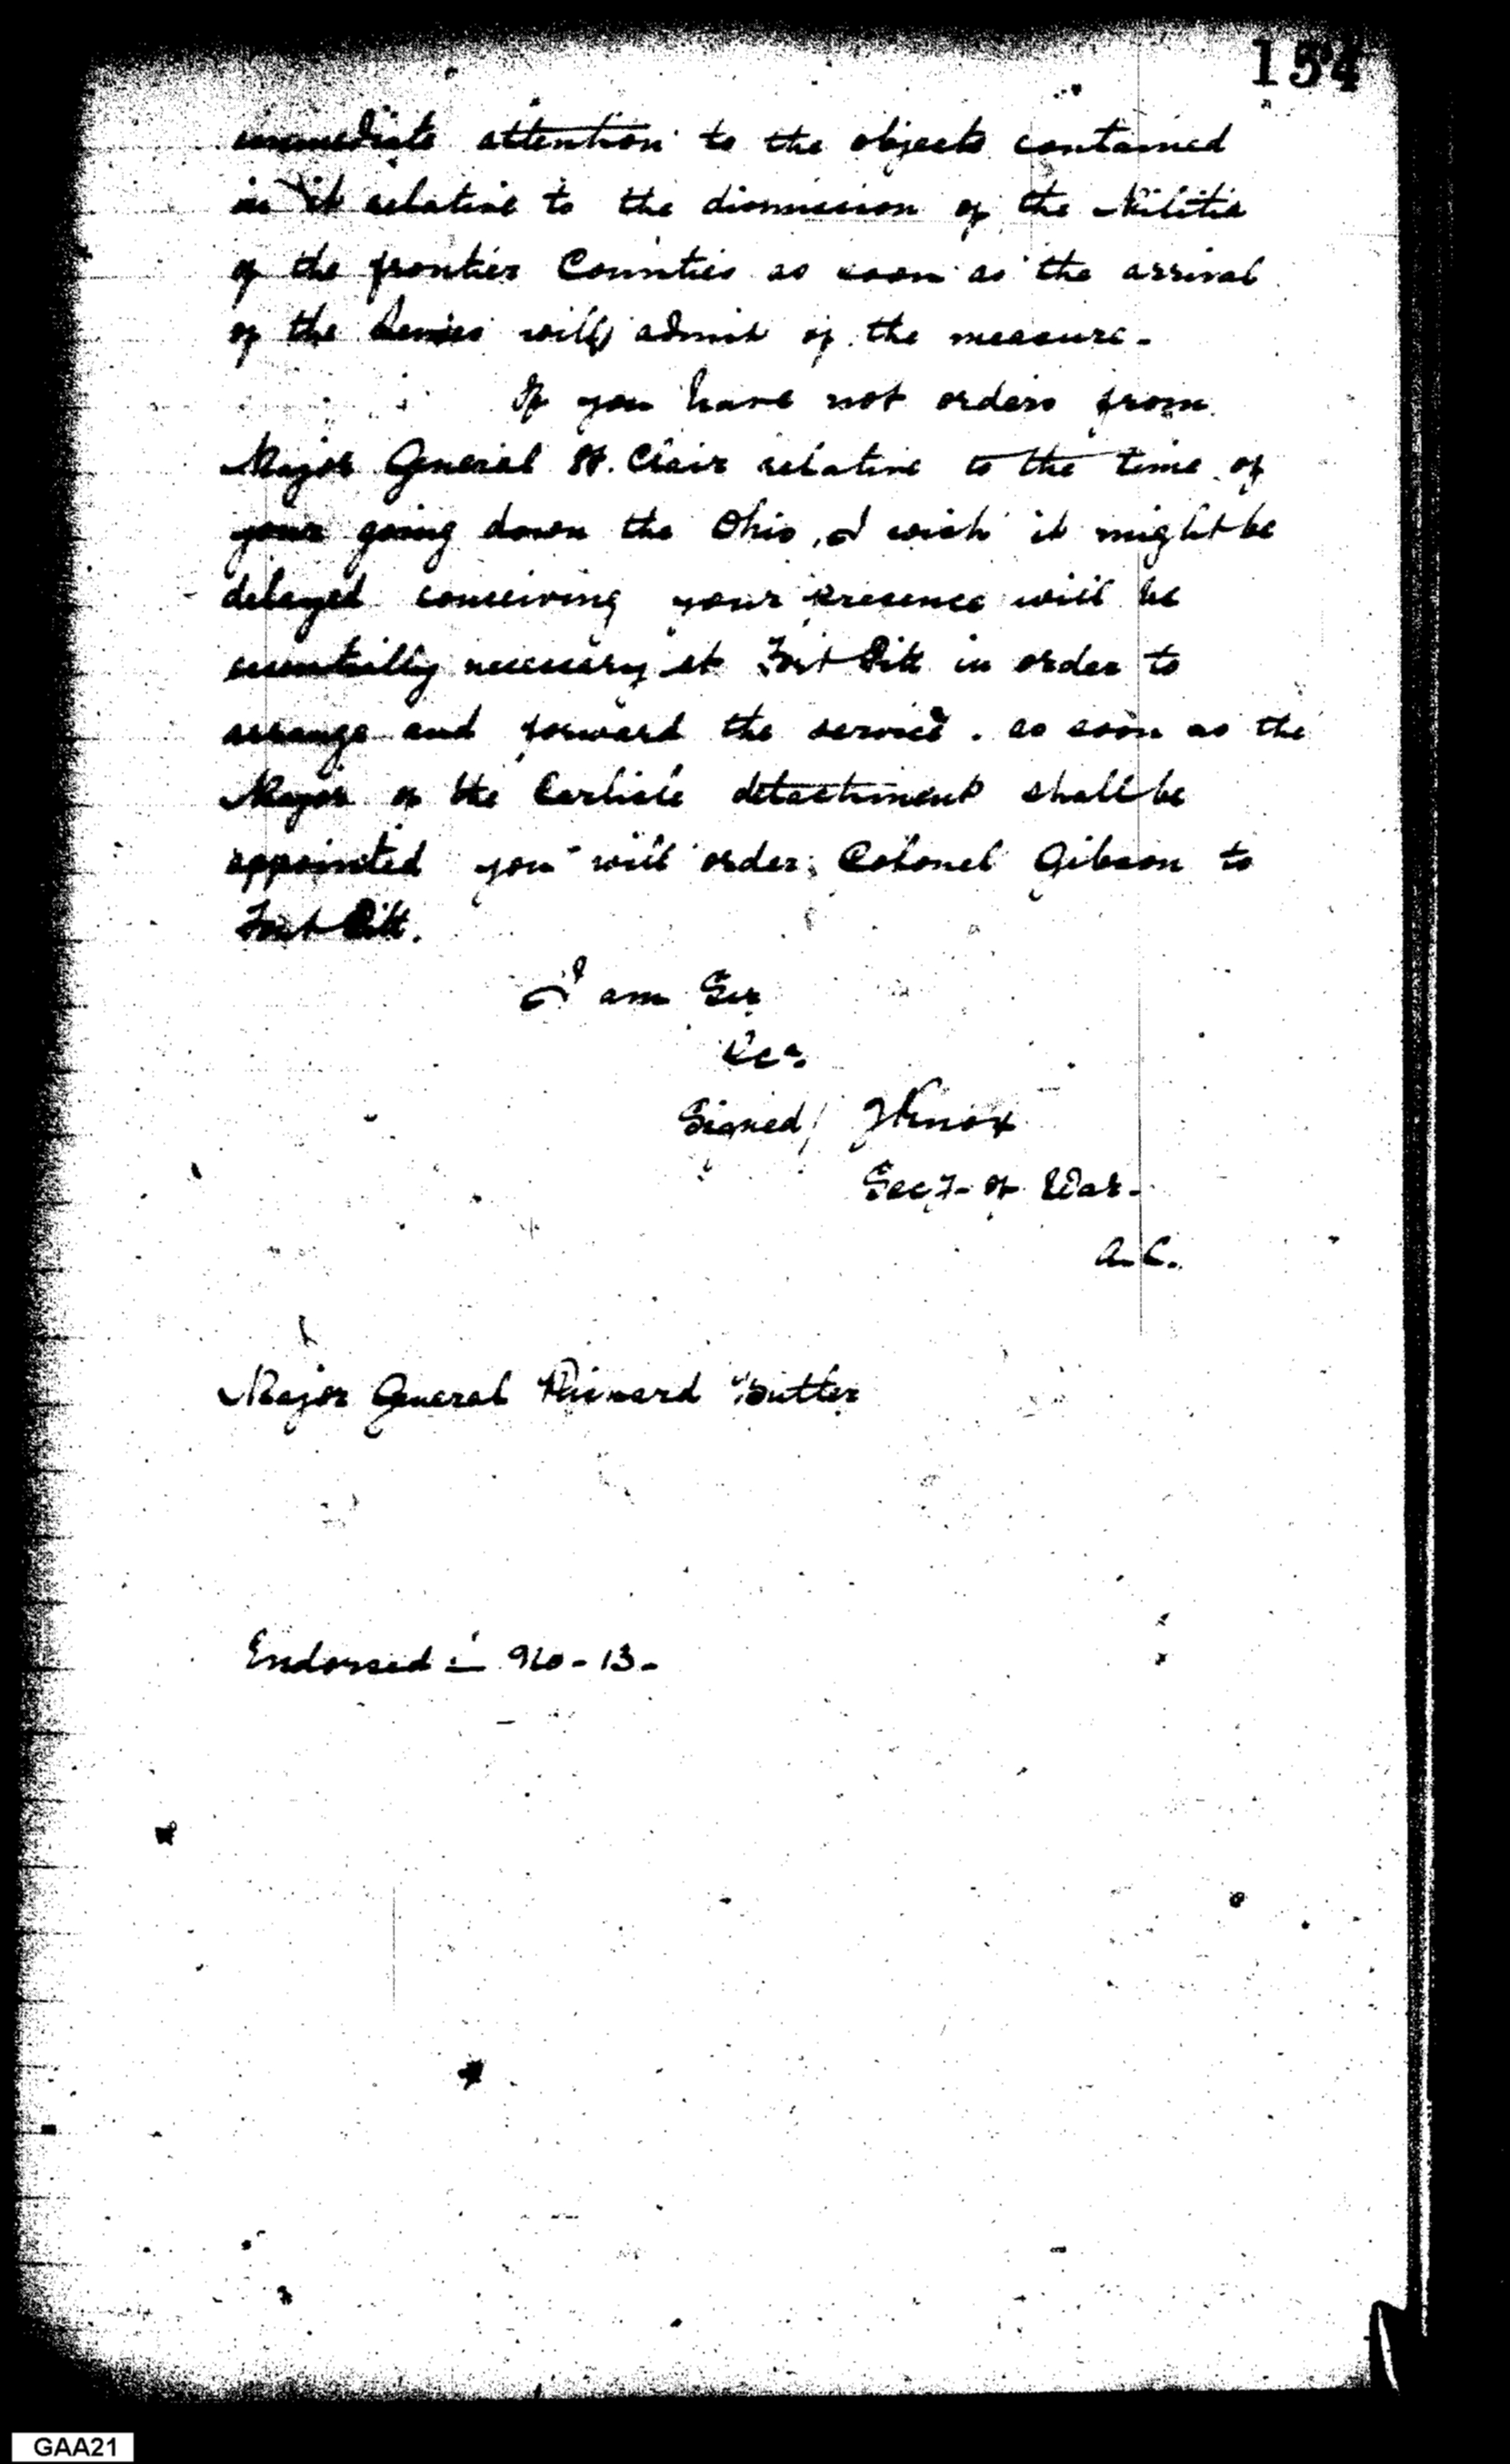 154
immediate attention to the objects contained
in it relative to the dismission of the Militia
of the frontier Counties as soon as the arrival
of the Levies will admit of the measure.-
If you have not orders from
Major General St. Clair relative to the time of
your going down the Ohio, I wish it might be
delayed conceiving your presence will be
essentially necessary at Fort Pitt in order to
arrange and forward the service. as soon as the
Major of the Carlisle detachment shall be
appointed you will order Colonel Gibson to
Fort Pitt.
I am Sir
&ca.
Signed/ HKnox
Secy- of War-
A.C.
Major General Richard Butler
Endorsed - No-13-
GAA21